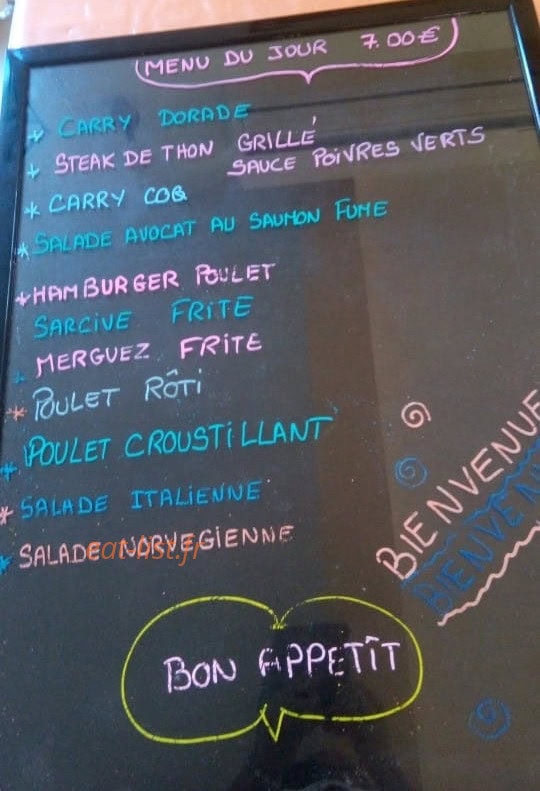 MENU DU JOUR 7.00€
* CARRY DORADE
* STEAK DE THON GRILLÉ
SAUCE POIVRES VERTS
* CARRY COQ
* SALADE AVOCAT AU SAUMON FUME
* HAMBURGER POULET
SARCIVE FRITE
* MERGUEZ FRITE
* POULET RÔTI
* POULET CROUSTILLANT
* SALADE ITALIENNE
* SALADE NORVEGIENNE
eatlist.fr
BIENVENUE
BIENVENUE
BON APPETÎT